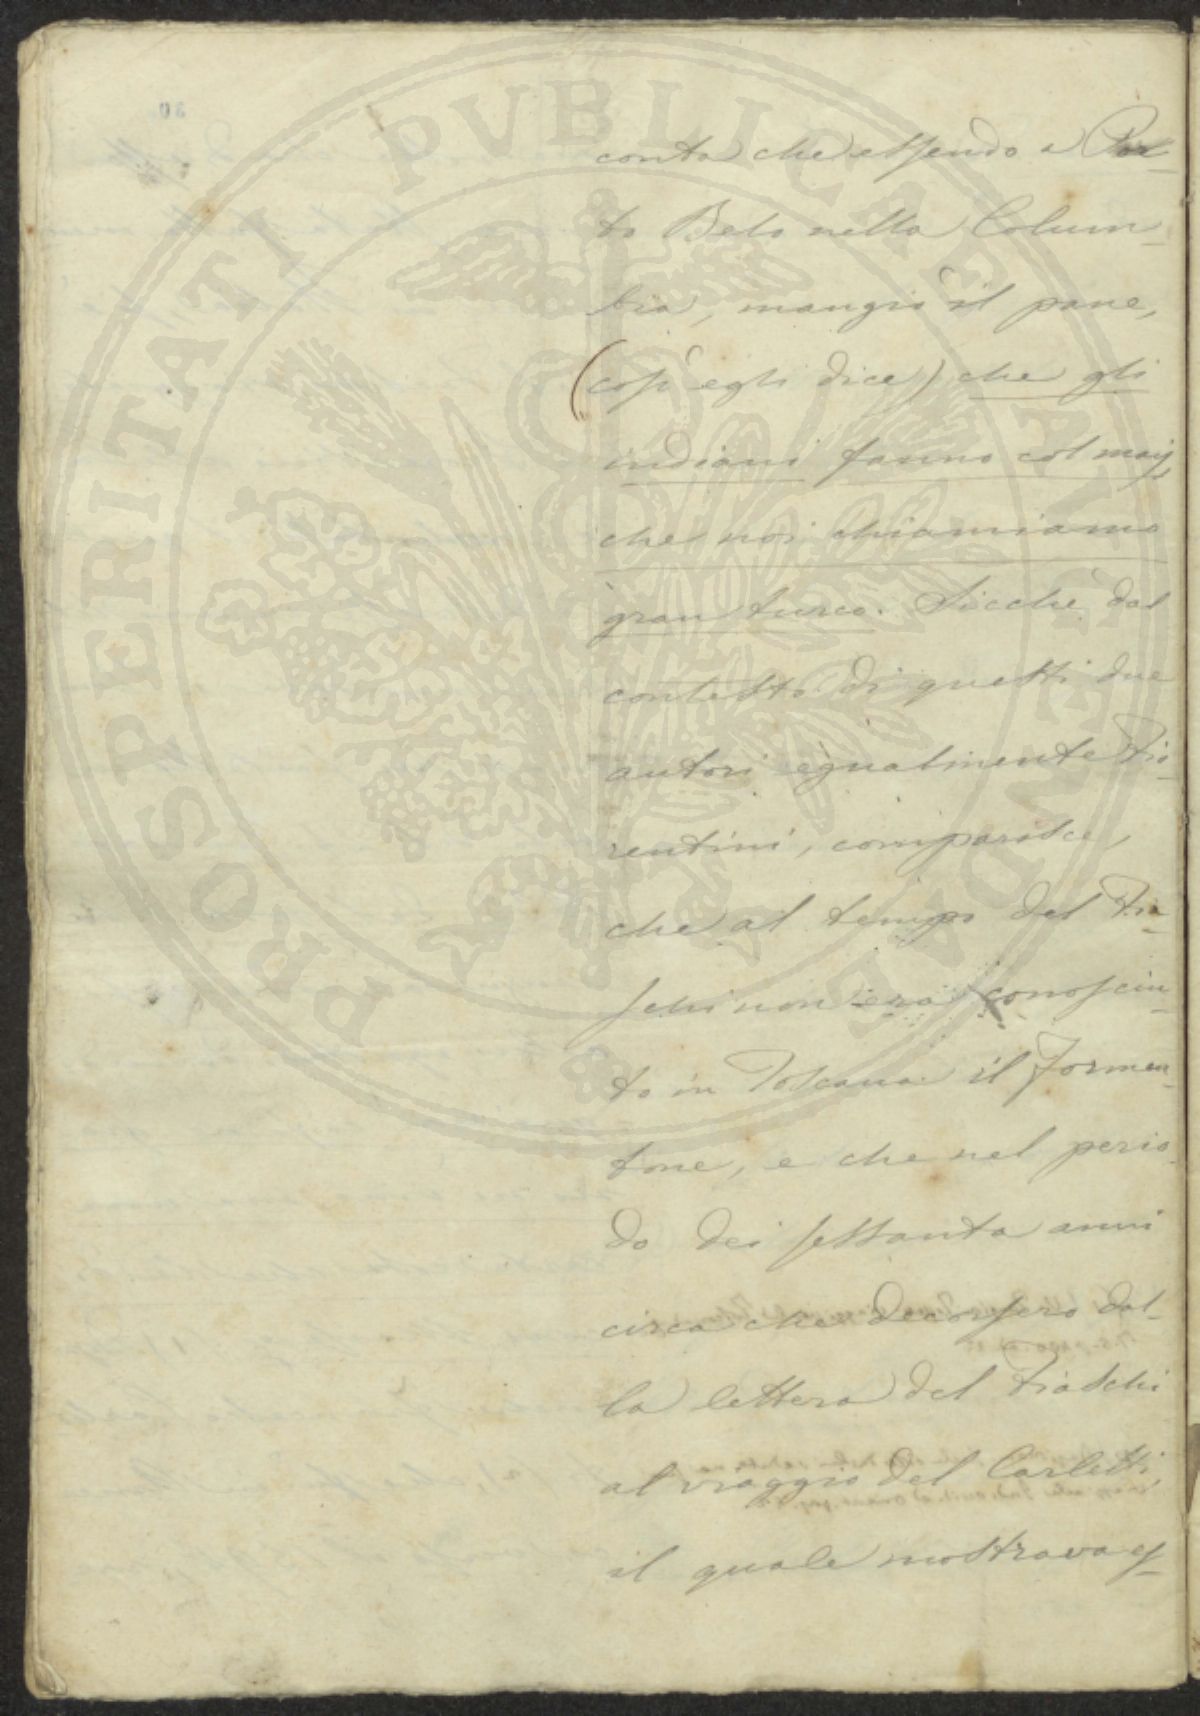 PROSPERITATI PVBLICAE AVGENDAE
conta che essendo a Por-
to Belo nella Colum-
bia, mangiò il pane,
(così egli dice) che gli
indiani fanno col mays
che noi chiamiamo
gran turco. Sicchè dal
contesto di questi due
autori egualmente Fio-
rentini, comparisce,
che al tempo del Fia-
schi non era conosciu-
to in Toscana il Formen-
tone, e che nel perio-
do dei settanta anni
circa che decorsero dal-
la lettera del Fiaschi
al viaggio del Carletti,
il quale mostrava es-